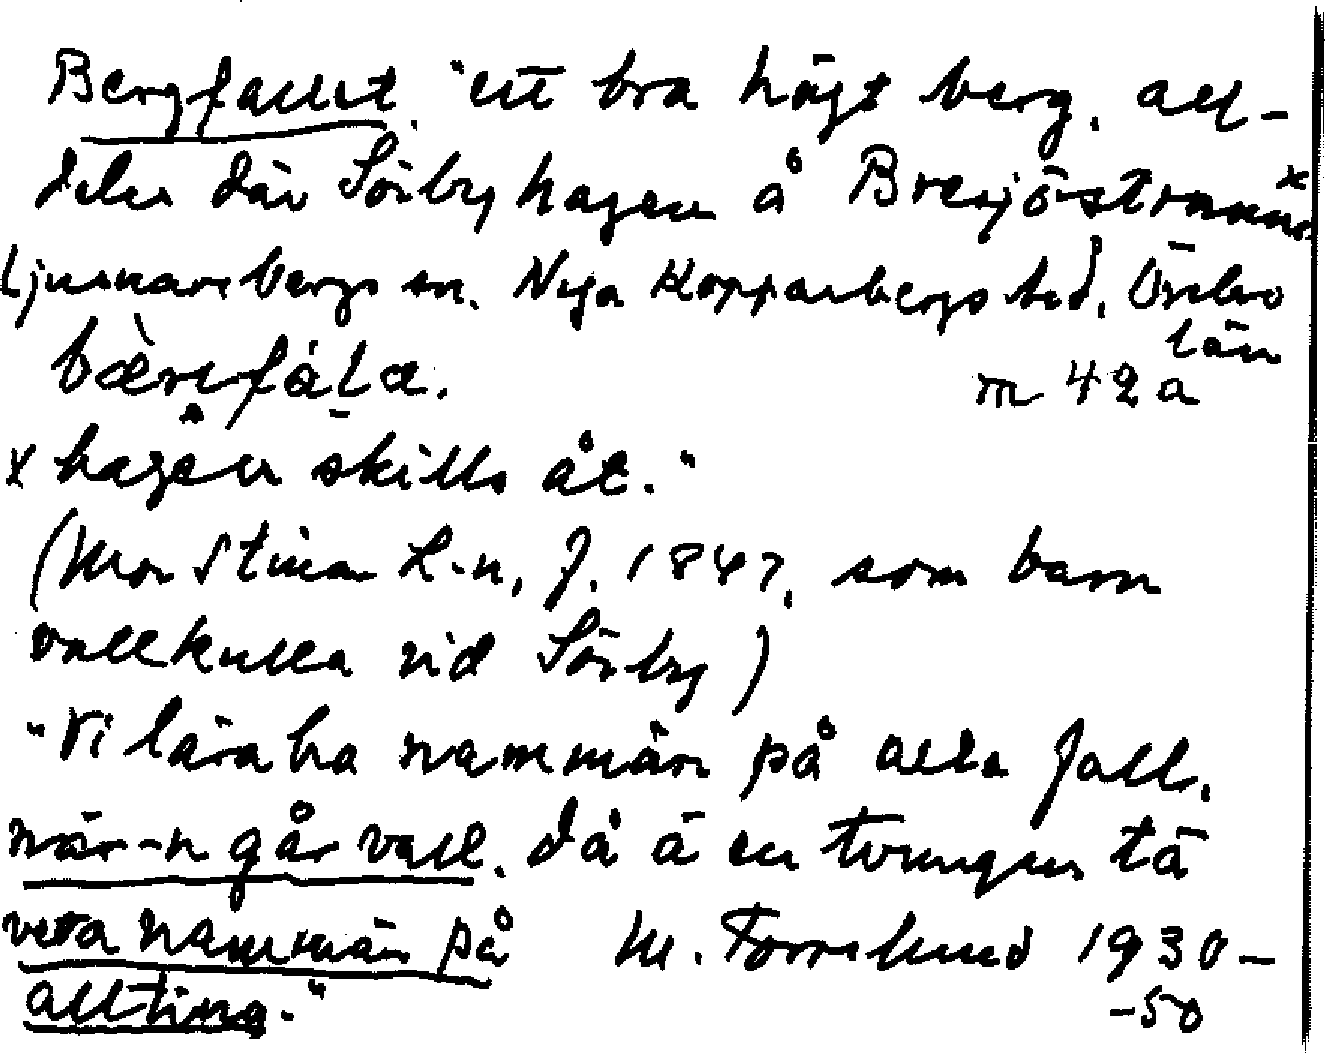 Bergfallet. "ett bra högt berg, all-
deles där Sörbyhagen å Bresjöstrann x
Ljusnarsbergs sn. Nya Kopparbergs bsd, Örebro
län
bæ̀rifála. m 42 a
x hagen skills åt."
(Mor Stina L-n, f. 1847, som barn
vallkulla vid Sörby)
"Vi lära ha nammän på alla fall,
när-n går vall. då ä en tvungen tä
veta nammän på M. Torrelund 1930-
allting." -50